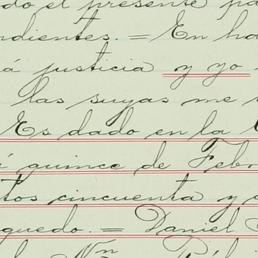 do el presente pa
ndientes. = En ha
á justicia y yo
las suyas me s
Es dado en la C
á quince de Febr
tos cincuenta y
guedo. = Daniel
Nn